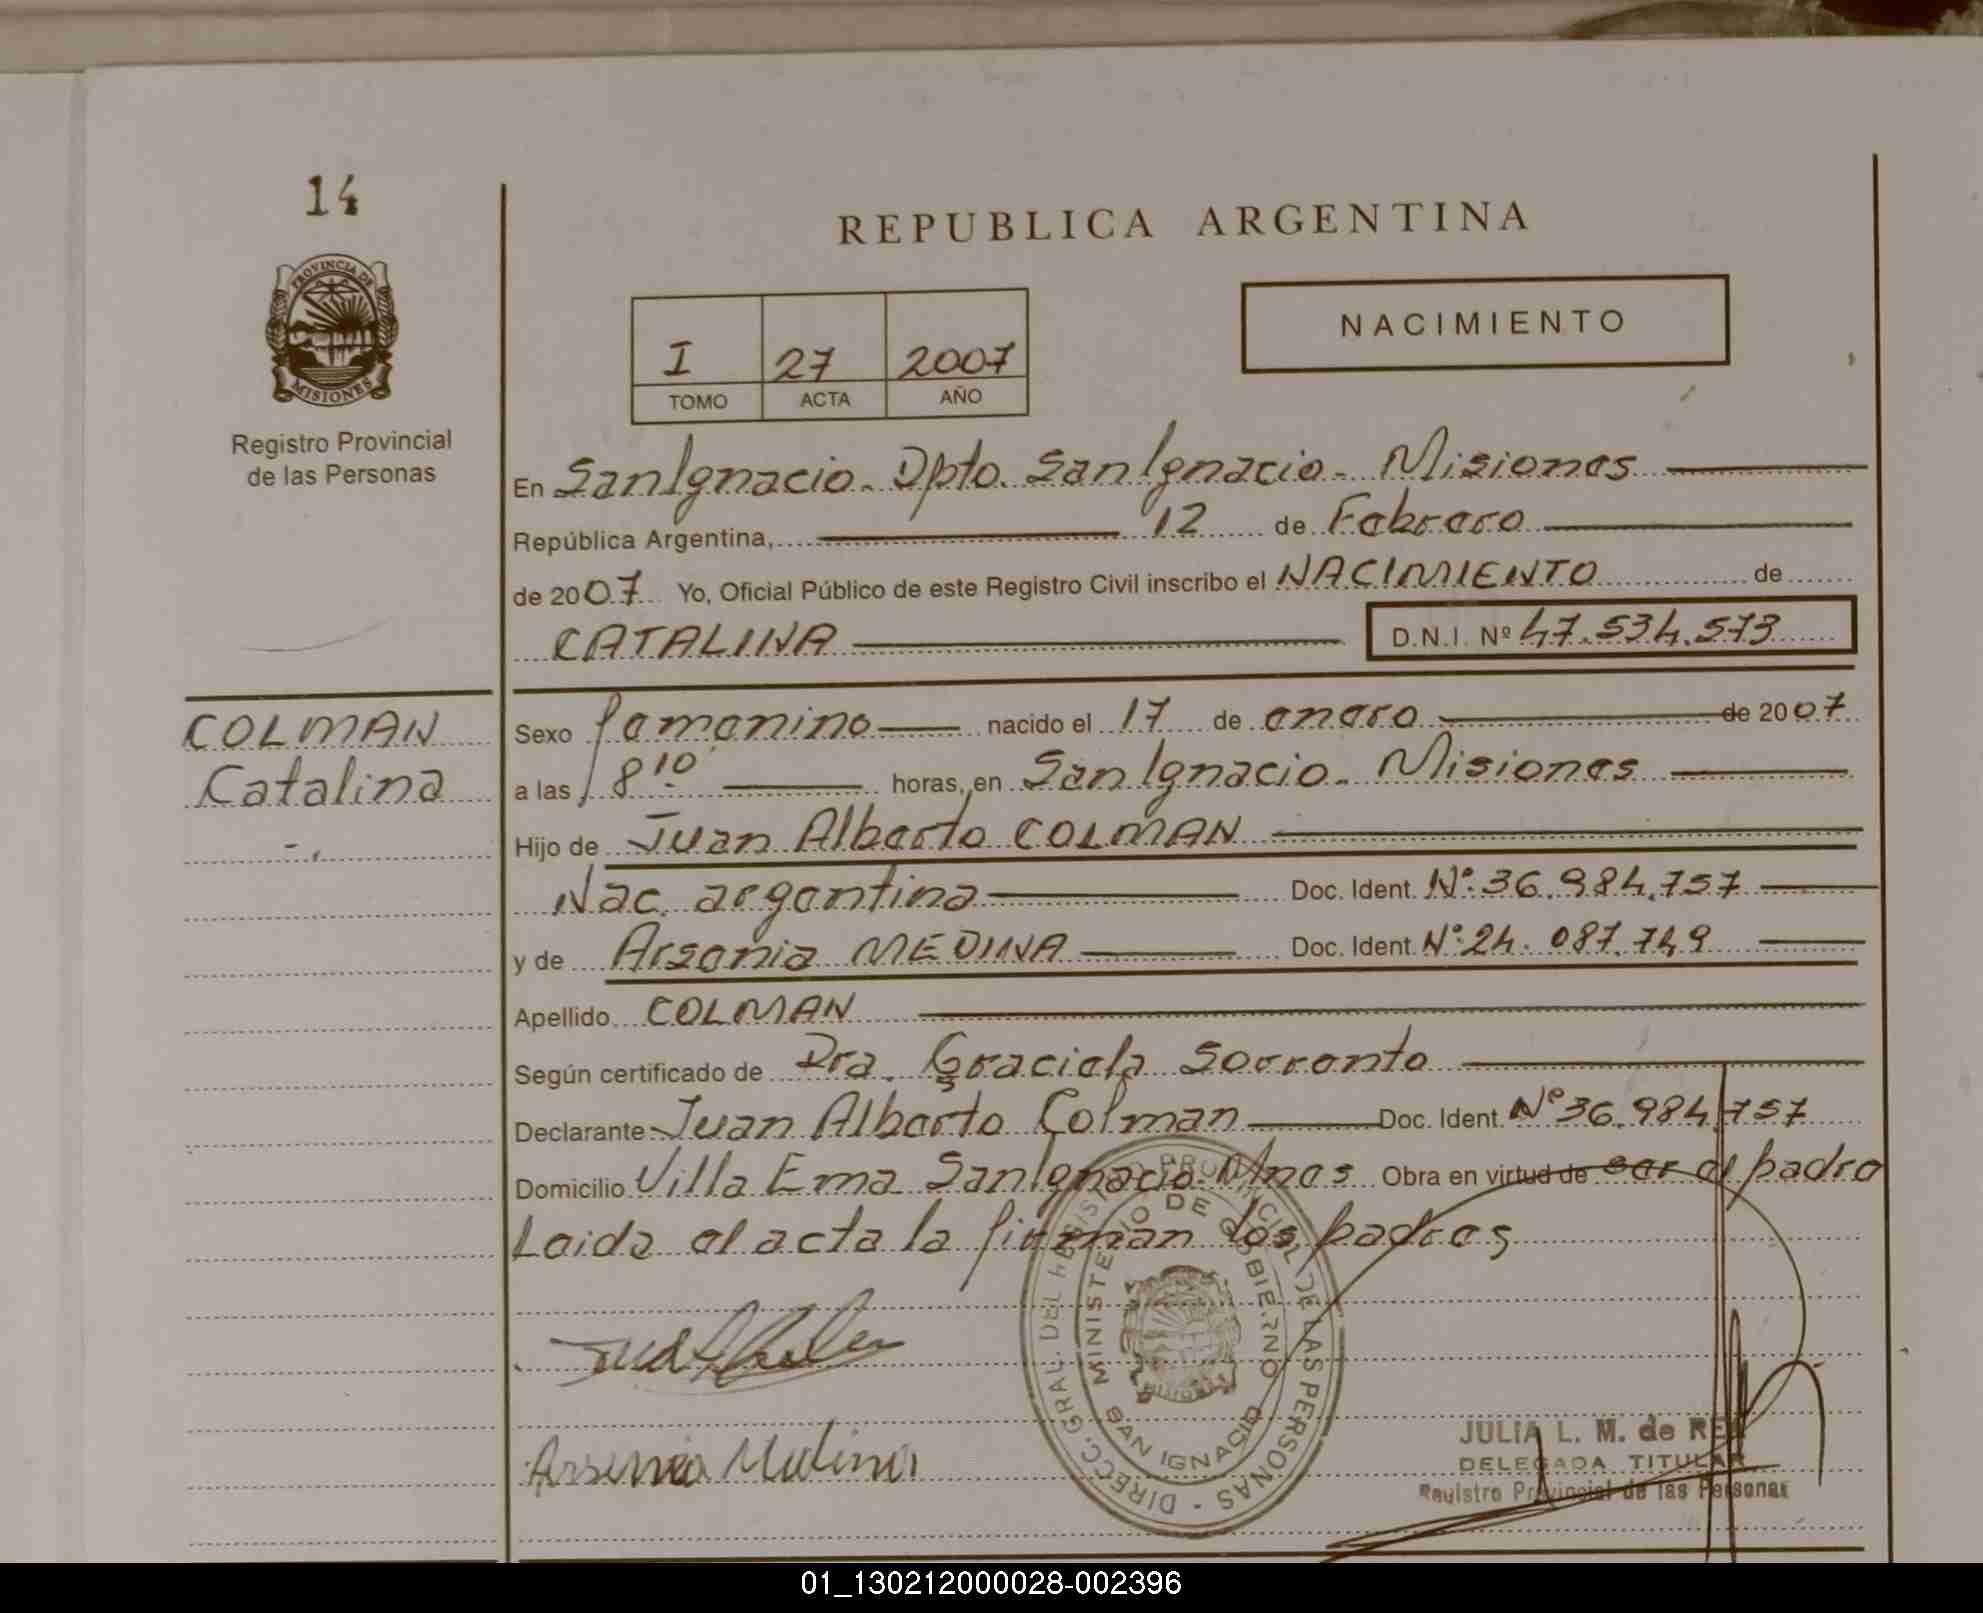 14
PROVINCIA DE
MISIONES
Registro Provincial
de las Personas
REPUBLICA ARGENTINA
I 27 2007
TOMO ACTA AÑO
NACIMIENTO
En San Ignacio. Dpto. San Ignacio. Misiones
República Argentina, 12 de Febrero
de 2007 Yo, Oficial Público de este Registro Civil inscribo el NACIMIENTO de
CATALINA D.N.I. Nº 47.534.573
COLMAN
Catalina
Sexo femenino nacido el 17 de enero de 2007
a las 8 10 horas, en San Ignacio. Misiones
Hijo de Juan Alberto COLMAN
Nac. argentina Doc. Ident. Nº 36.984.757
y de Arsenia MEDINA Doc. Ident. Nº 24.087.749
Apellido COLMAN
Según certificado de Dra. Graciela Sorrento
Declarante Juan Alberto Colman Doc. Ident. Nº 36.984.757
Domicilio Villa Ema San Ignacio. Mnes Obra en virtud de ser el padre
Leida el acta la firman los padres
Arsenia Medina
DIRECC. GRAL. DEL REGISTRO PROVINCIAL DE LAS PERSONAS -
MINISTERIO DE GOBIERNO
SAN IGNACIO
JULIA L. M. de
DELEGADA TITULAR
Registro Provincial de las Personas
01_130212000028-002396